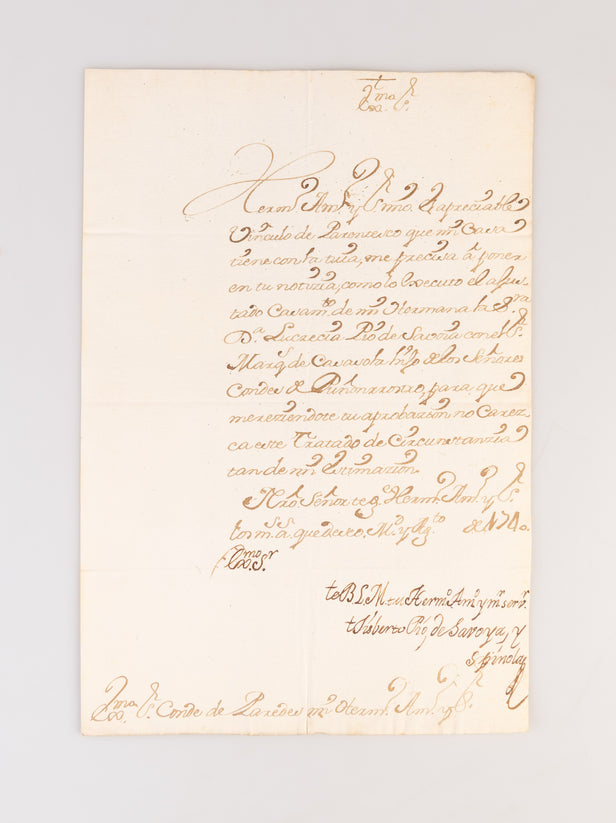 Exma. Sr.
Herm.º Am.º y Sr. mio. El apreciable
Vinculo de Parentesco que mi Casa
tiene con la tuia, me precisa â poner
en tu notizia, como lo executo el ajus-
tado Casam.to de mi Hermana la S.ra
D.ª Lucrecia Pio de Savoia con el Sr.
Marq.s de Casasola hijo de los Señores
Condes de Puñonrrostro, para que
mereziendote tu aprobazion no Carez-
ca este Tratado de Circunstanzia
tan de mi estimazion.
Nrô. Señor te g.e Herm.º Am.º y Sr.
los m.s a.s que deseo. M.d y Ag.to de 174
Exmo. S.r
te B L M. tu Herm.º Am.º y m.r ser.r
Gisberto Pio de Savoya, y
Spinola
Exma. Sr. Conde de Paredes mi Herm.º Am.º y Sr.